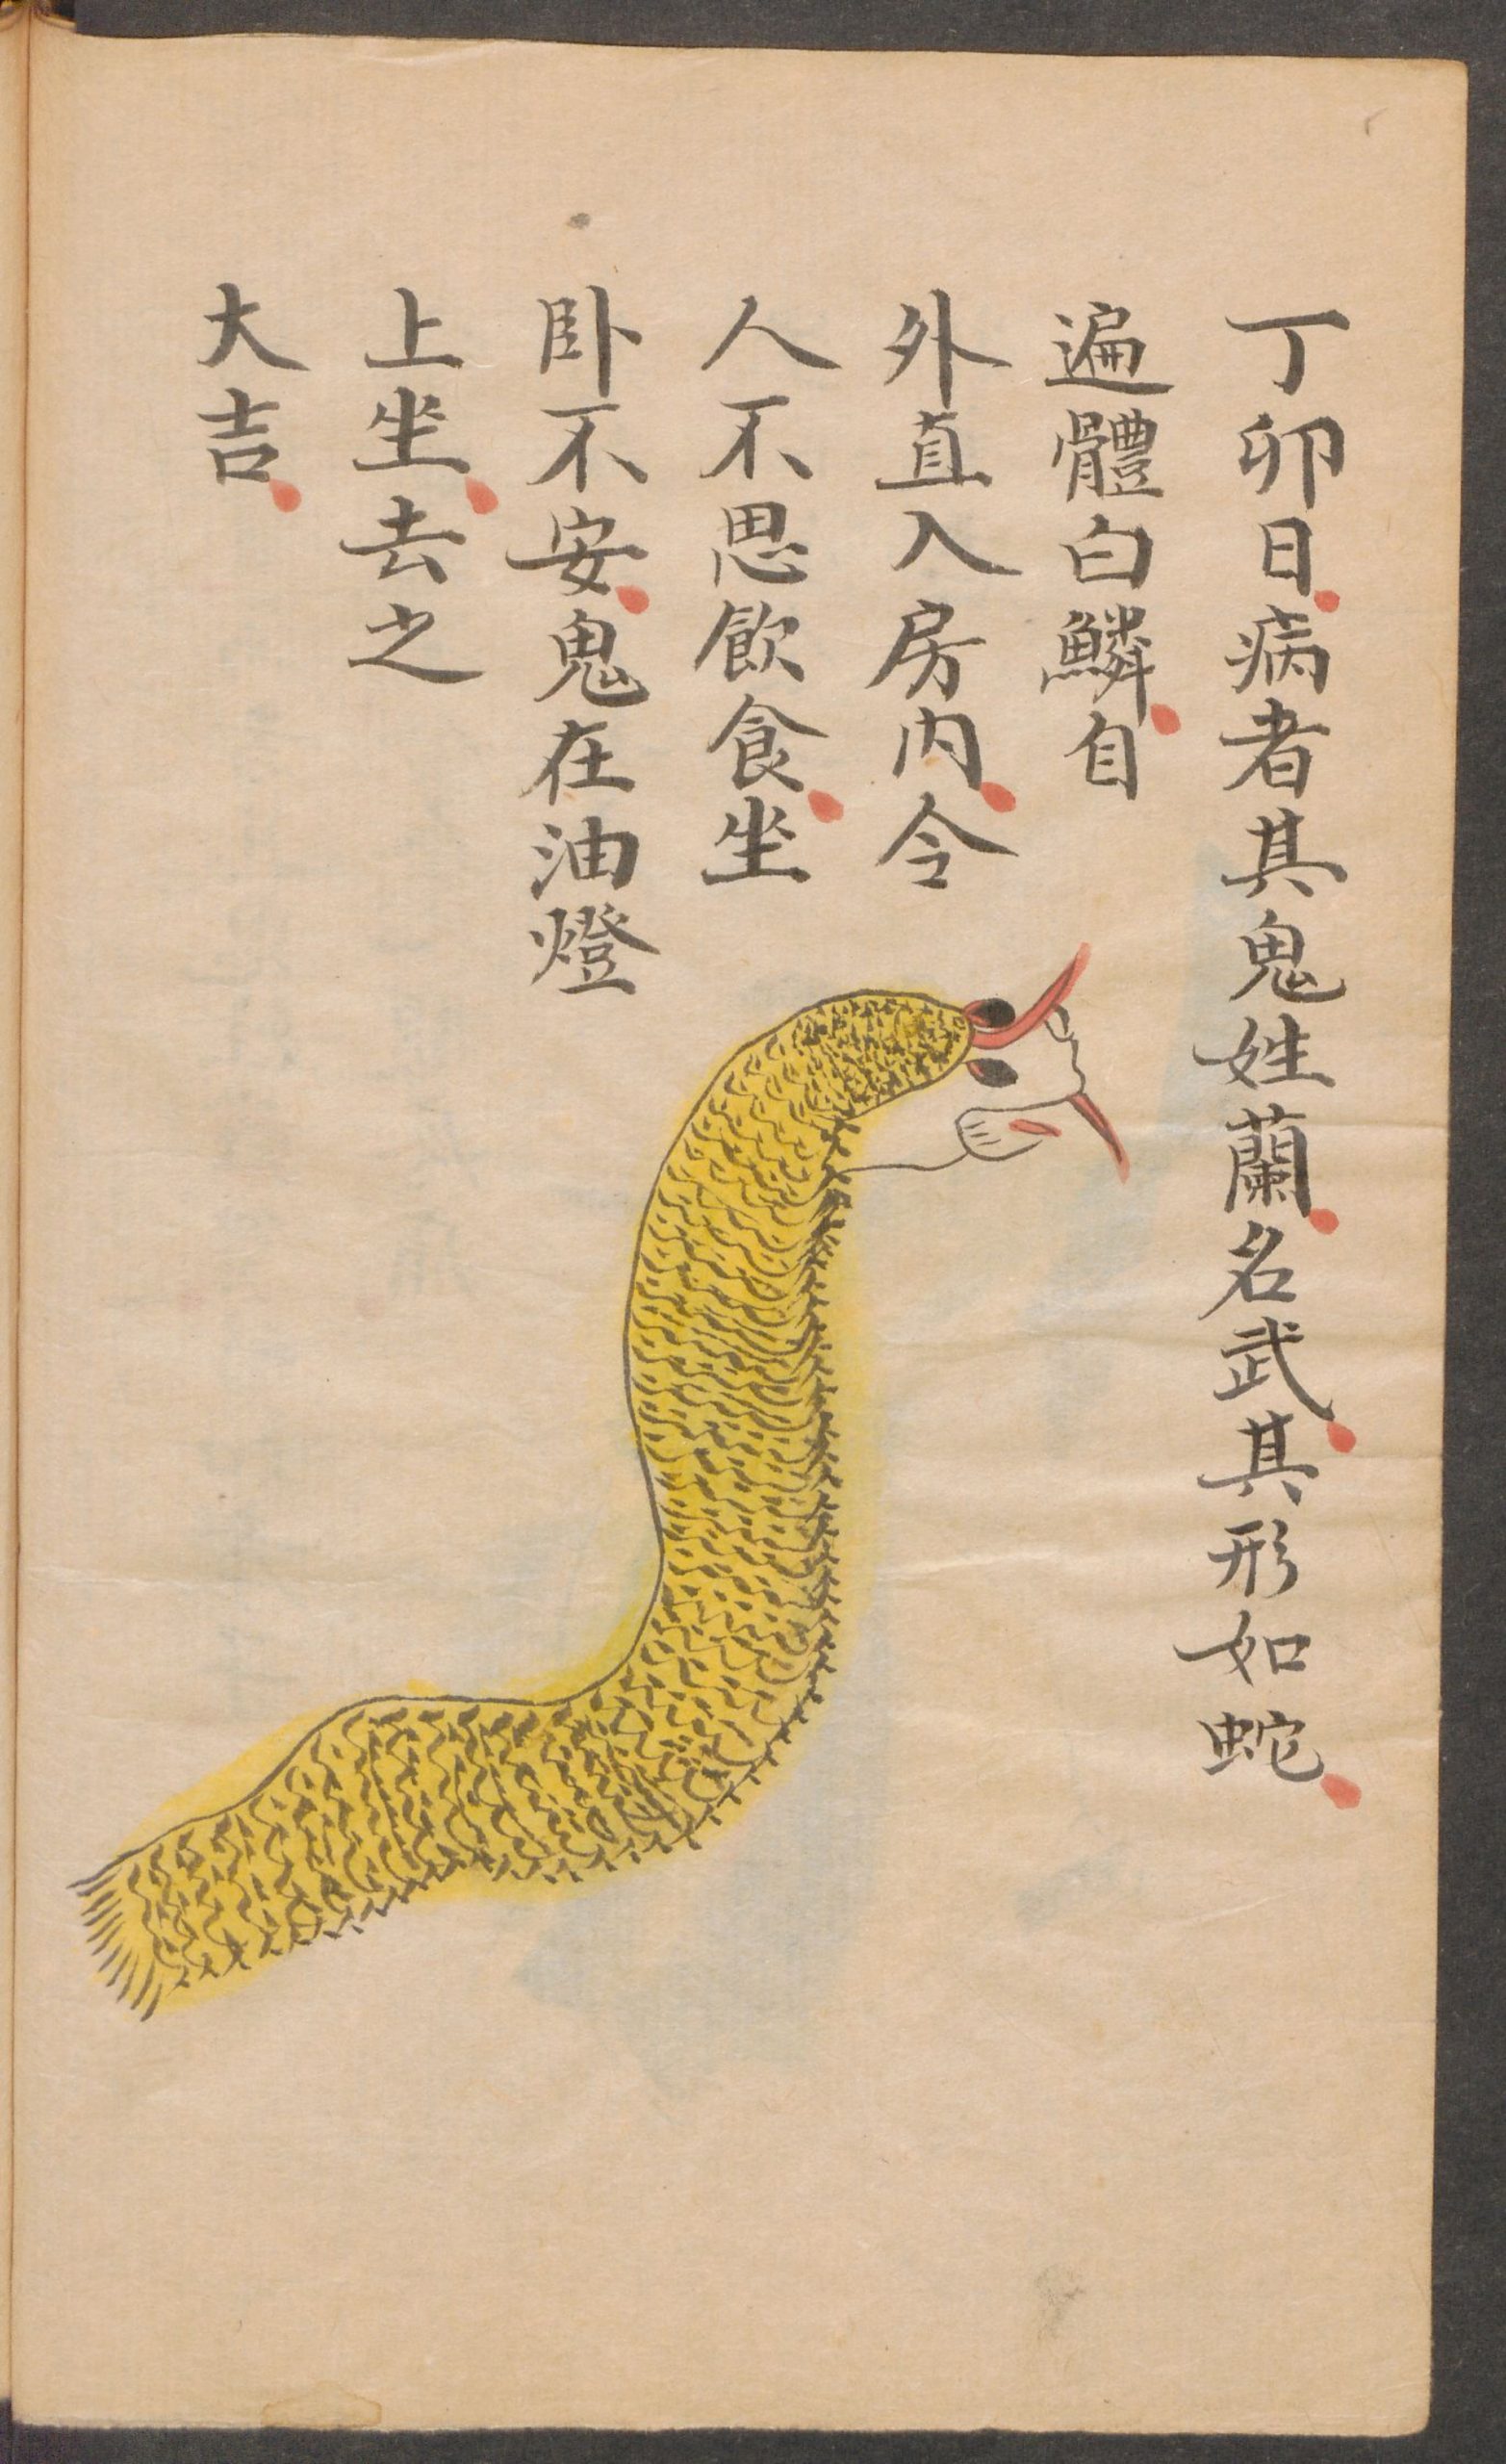 丁卯日病者其鬼姓蘭名武其形如蛇
遍體白鱗自
外直入房内令
人不思飲食坐
卧不安鬼在油燈
上坐去之
大吉